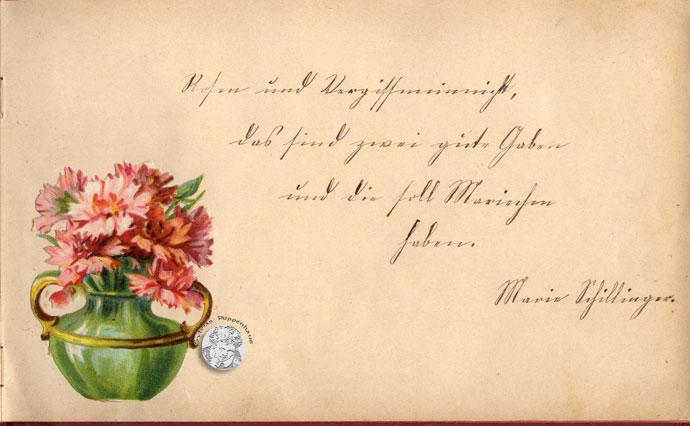 Rosen und Vergissmeinnicht,
das sind zwei gute Gaben
und die soll Mariechen
haben.
Marie Schillinger.
Puppenhaim